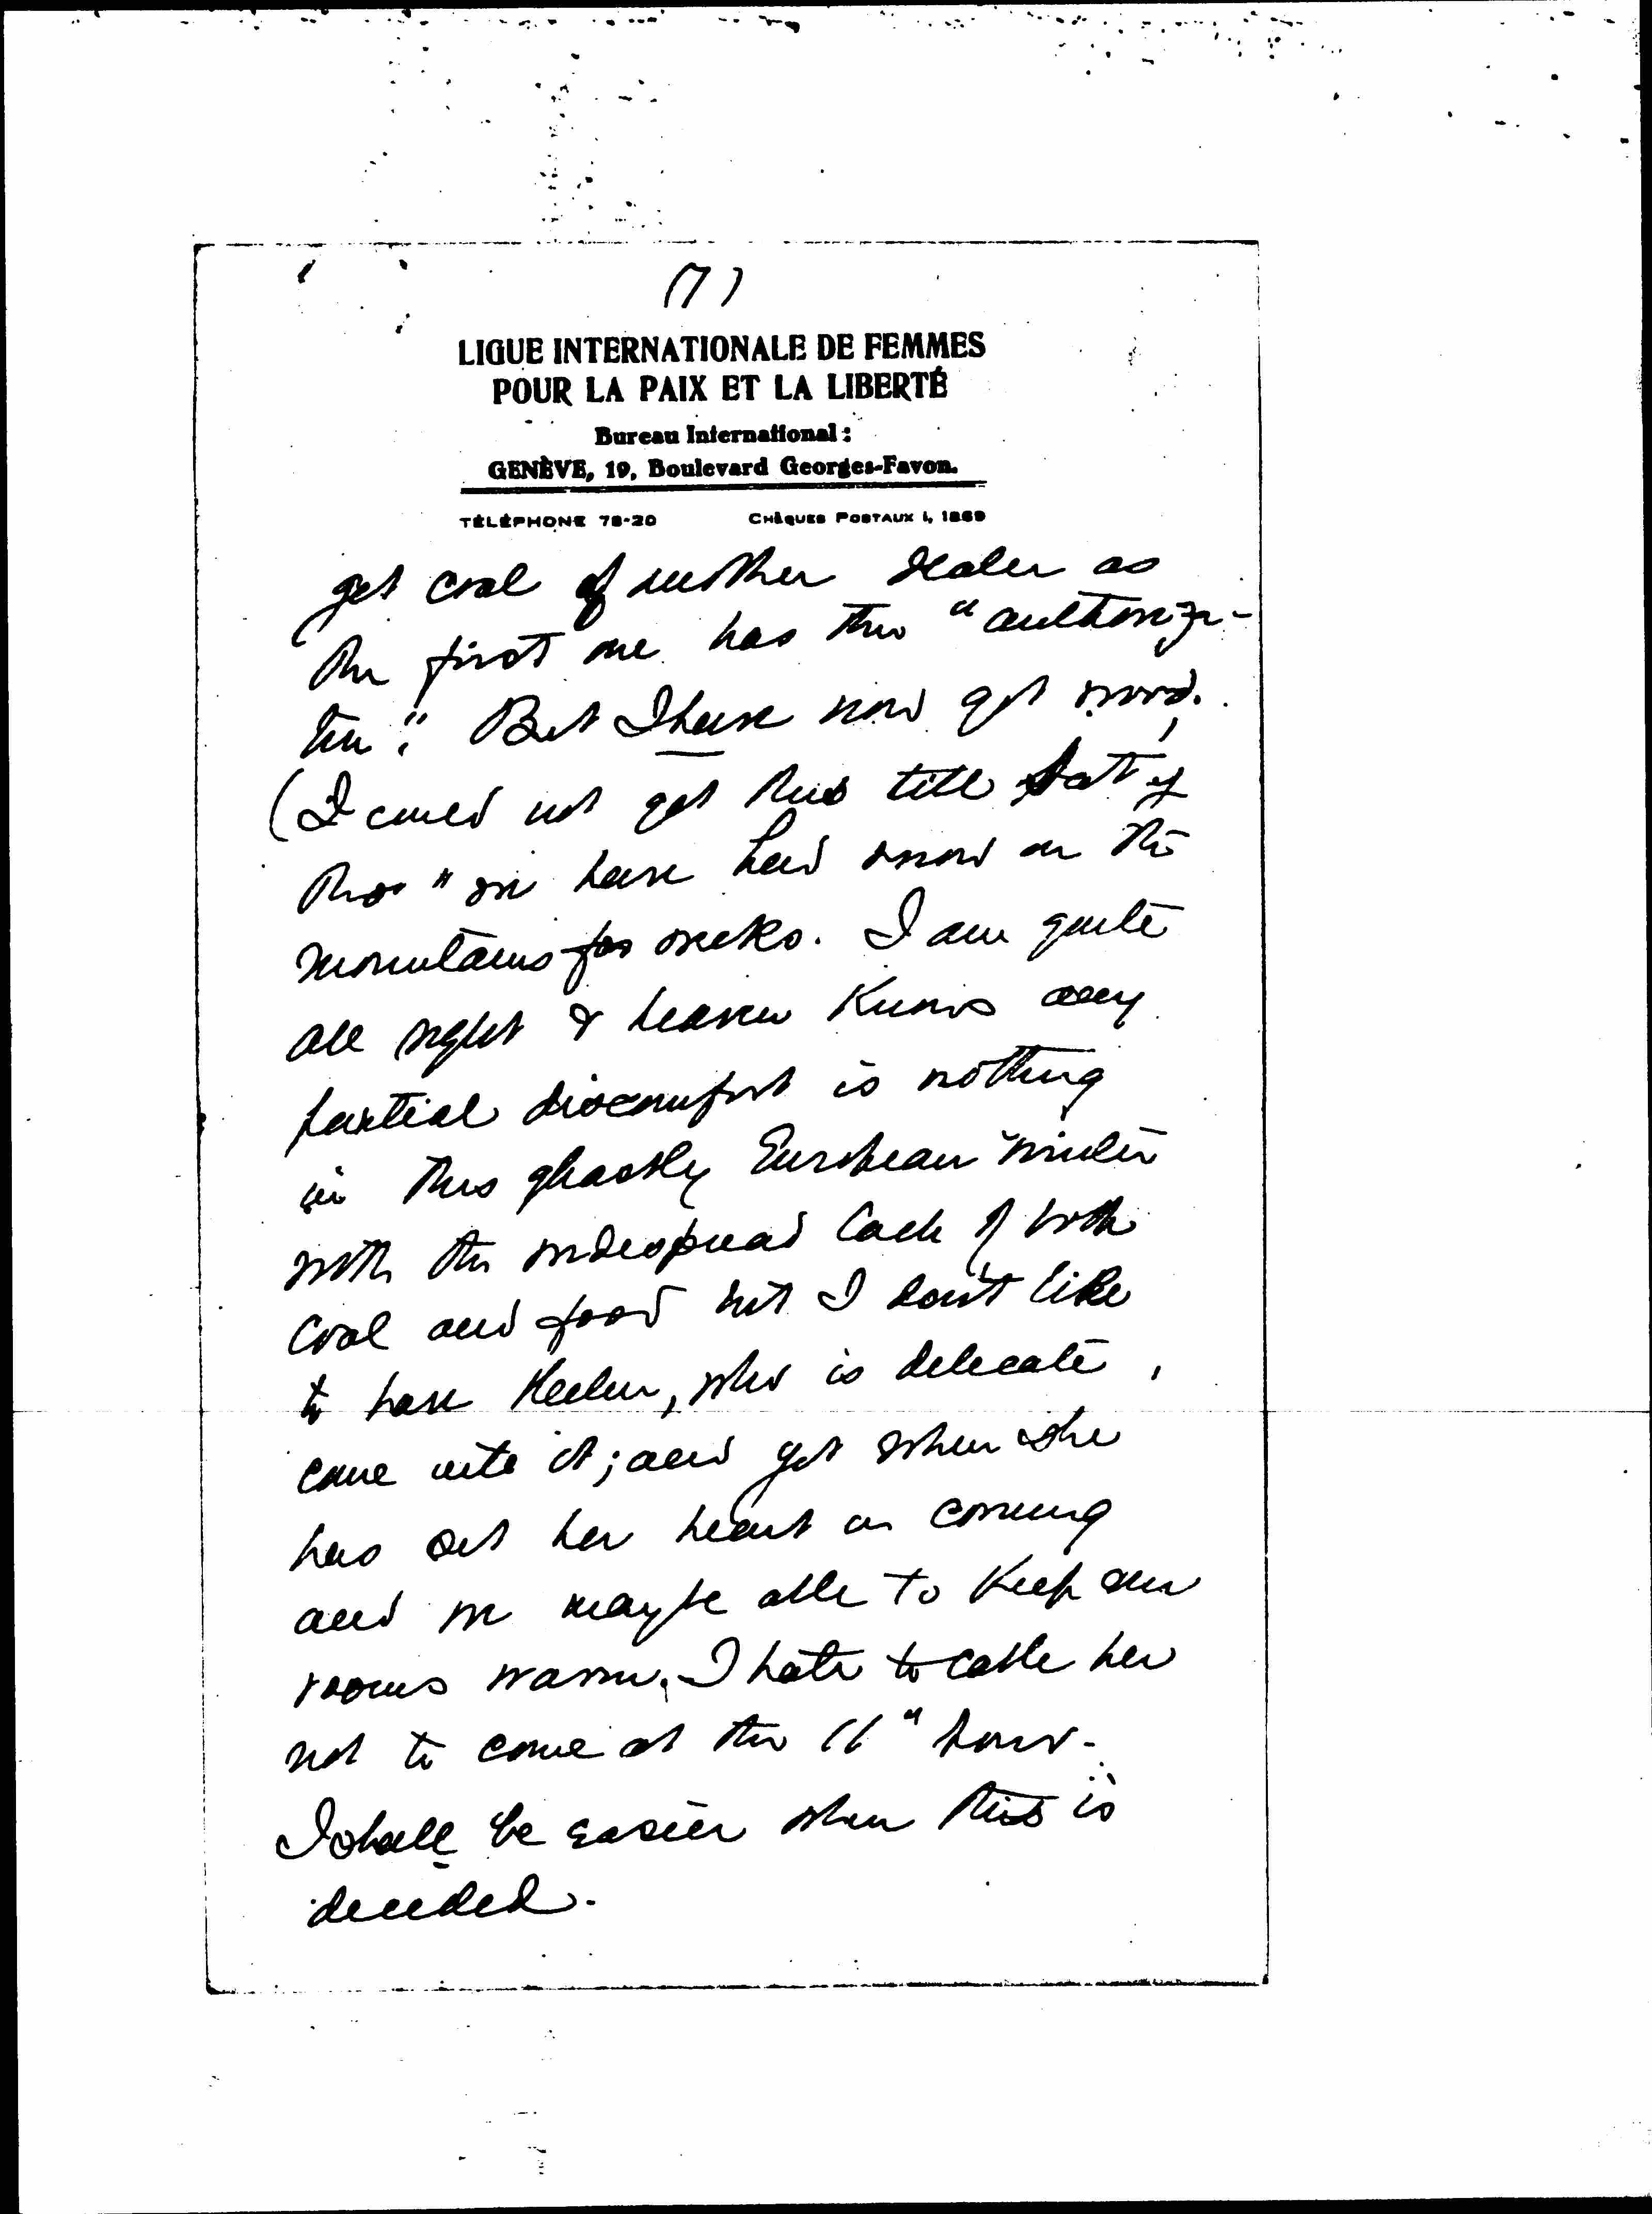 (7)
LIGUE INTERNATIONALE DE FEMMES
POUR LA PAIX ET LA LIBERTÉ
Bureau International:
GENÈVE, 19, Boulevard Georges-Favon.
TÉLÉPHONE 78-20 CHÈQUES POSTAUX I, 1869
get coal of another dealer as
the first one has the "authoriza-
tion". But I have now got wood.
(I could not get this till Sat. of
this " we have had snow on the
mountains for weeks. I am quite
all right & heaven knows any
partial discomfort is nothing
in this ghastly European winter
with the widespread lack of both
coal and food but I don't like
to have Helen, who is delicate,
come into it; and yet when she
has set her heart on coming
and we may be able to keep our
rooms warm, I hate to cable her
not to come at the 11" hour.
I shall be easier when this is
decided.